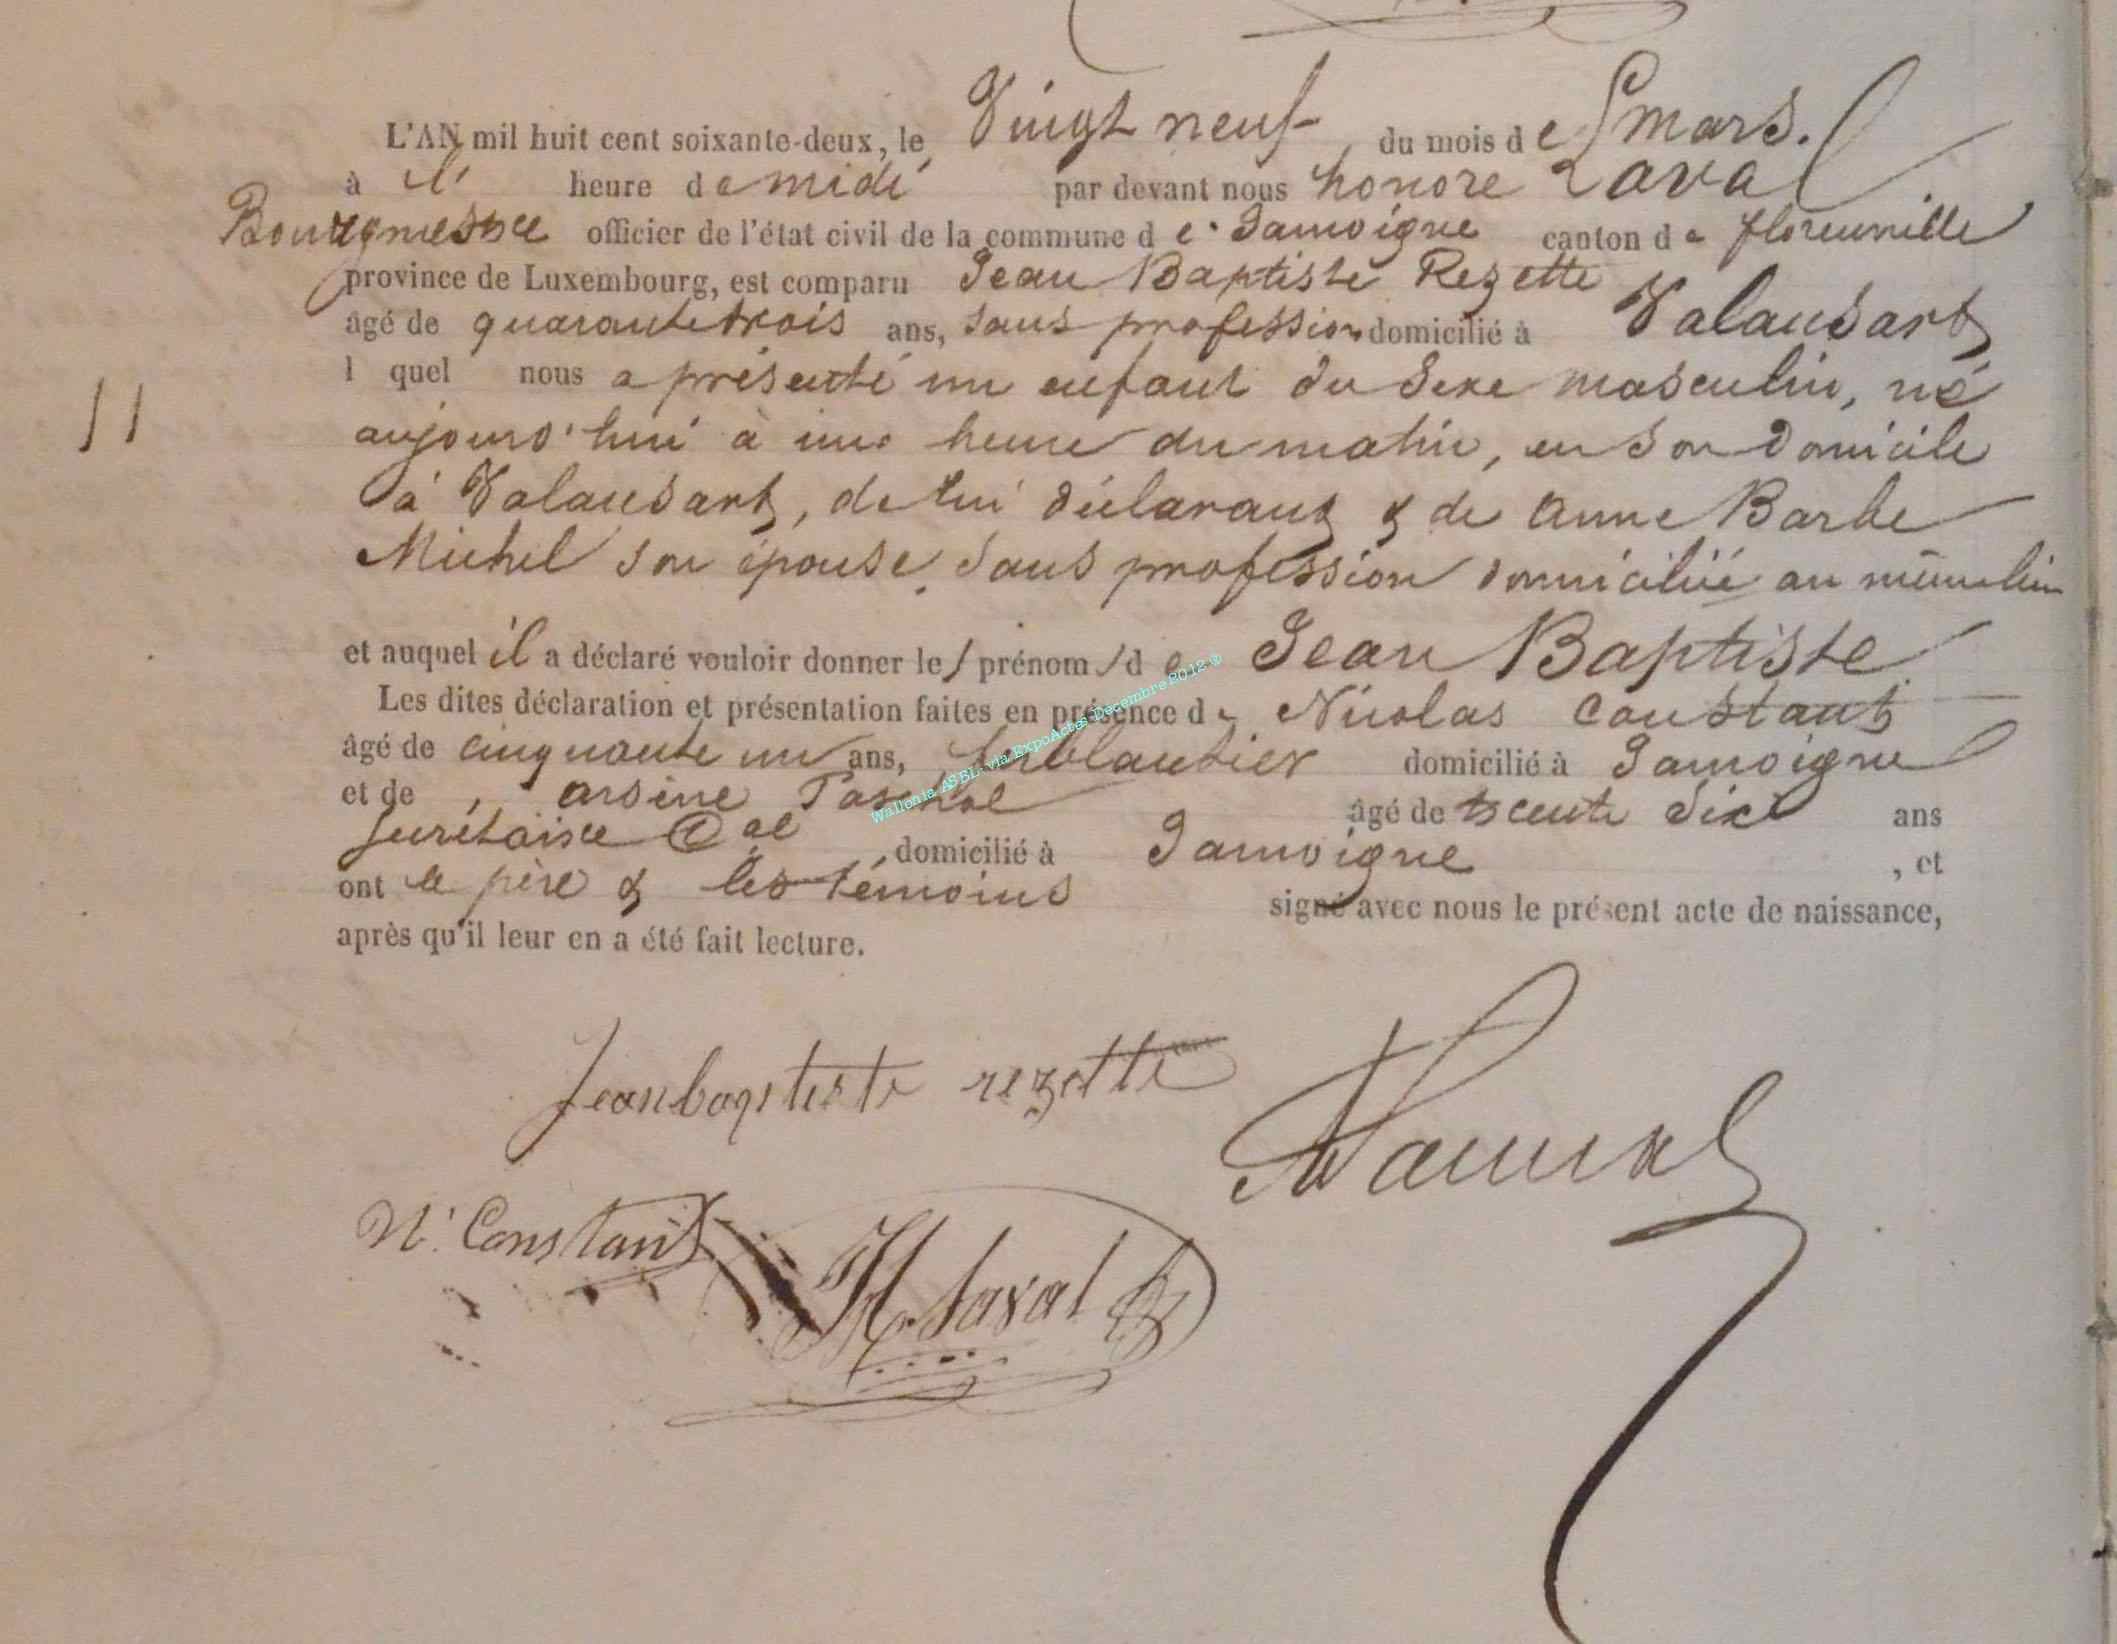 L'AN mil huit cent soixante-deux, le Vingt neuf du mois de mars.
à l' heure de midi par devant nous honoré Laval
Bourgmestre officier de l'état civil de la commune de Jamoigne canton de florenville
province de Luxembourg, est comparu Jean Baptiste Rezette
âgé de quarante trois ans, sans profession domicilié à Valansart
l quel nous a présenté un enfant du sexe masculin, né
aujourd'hui à une heure du matin, en son domicile
à Valansart, de lui déclarant & de Anne Barbe
Michel son épouse, sans profession domiciliée au même lieu
et auquel il a déclaré vouloir donner le prénom de Jean Baptiste
Les dites déclaration et présentation faites en présence de Nicolas Constant
âgé de cinquante un ans, ferblantier domicilié à Jamoigne
et de arsène Paschal âgé de trente six ans
secrétaire Cal domicilié à Jamoigne, et
ont le père & les témoins signé avec nous le présent acte de naissance,
après qu'il leur en a été fait lecture.
11
Jeanbaptiste rezette
N. Constant
H. Laval
Wallonia ASBL via ExpoActes Decembre 2012 ®